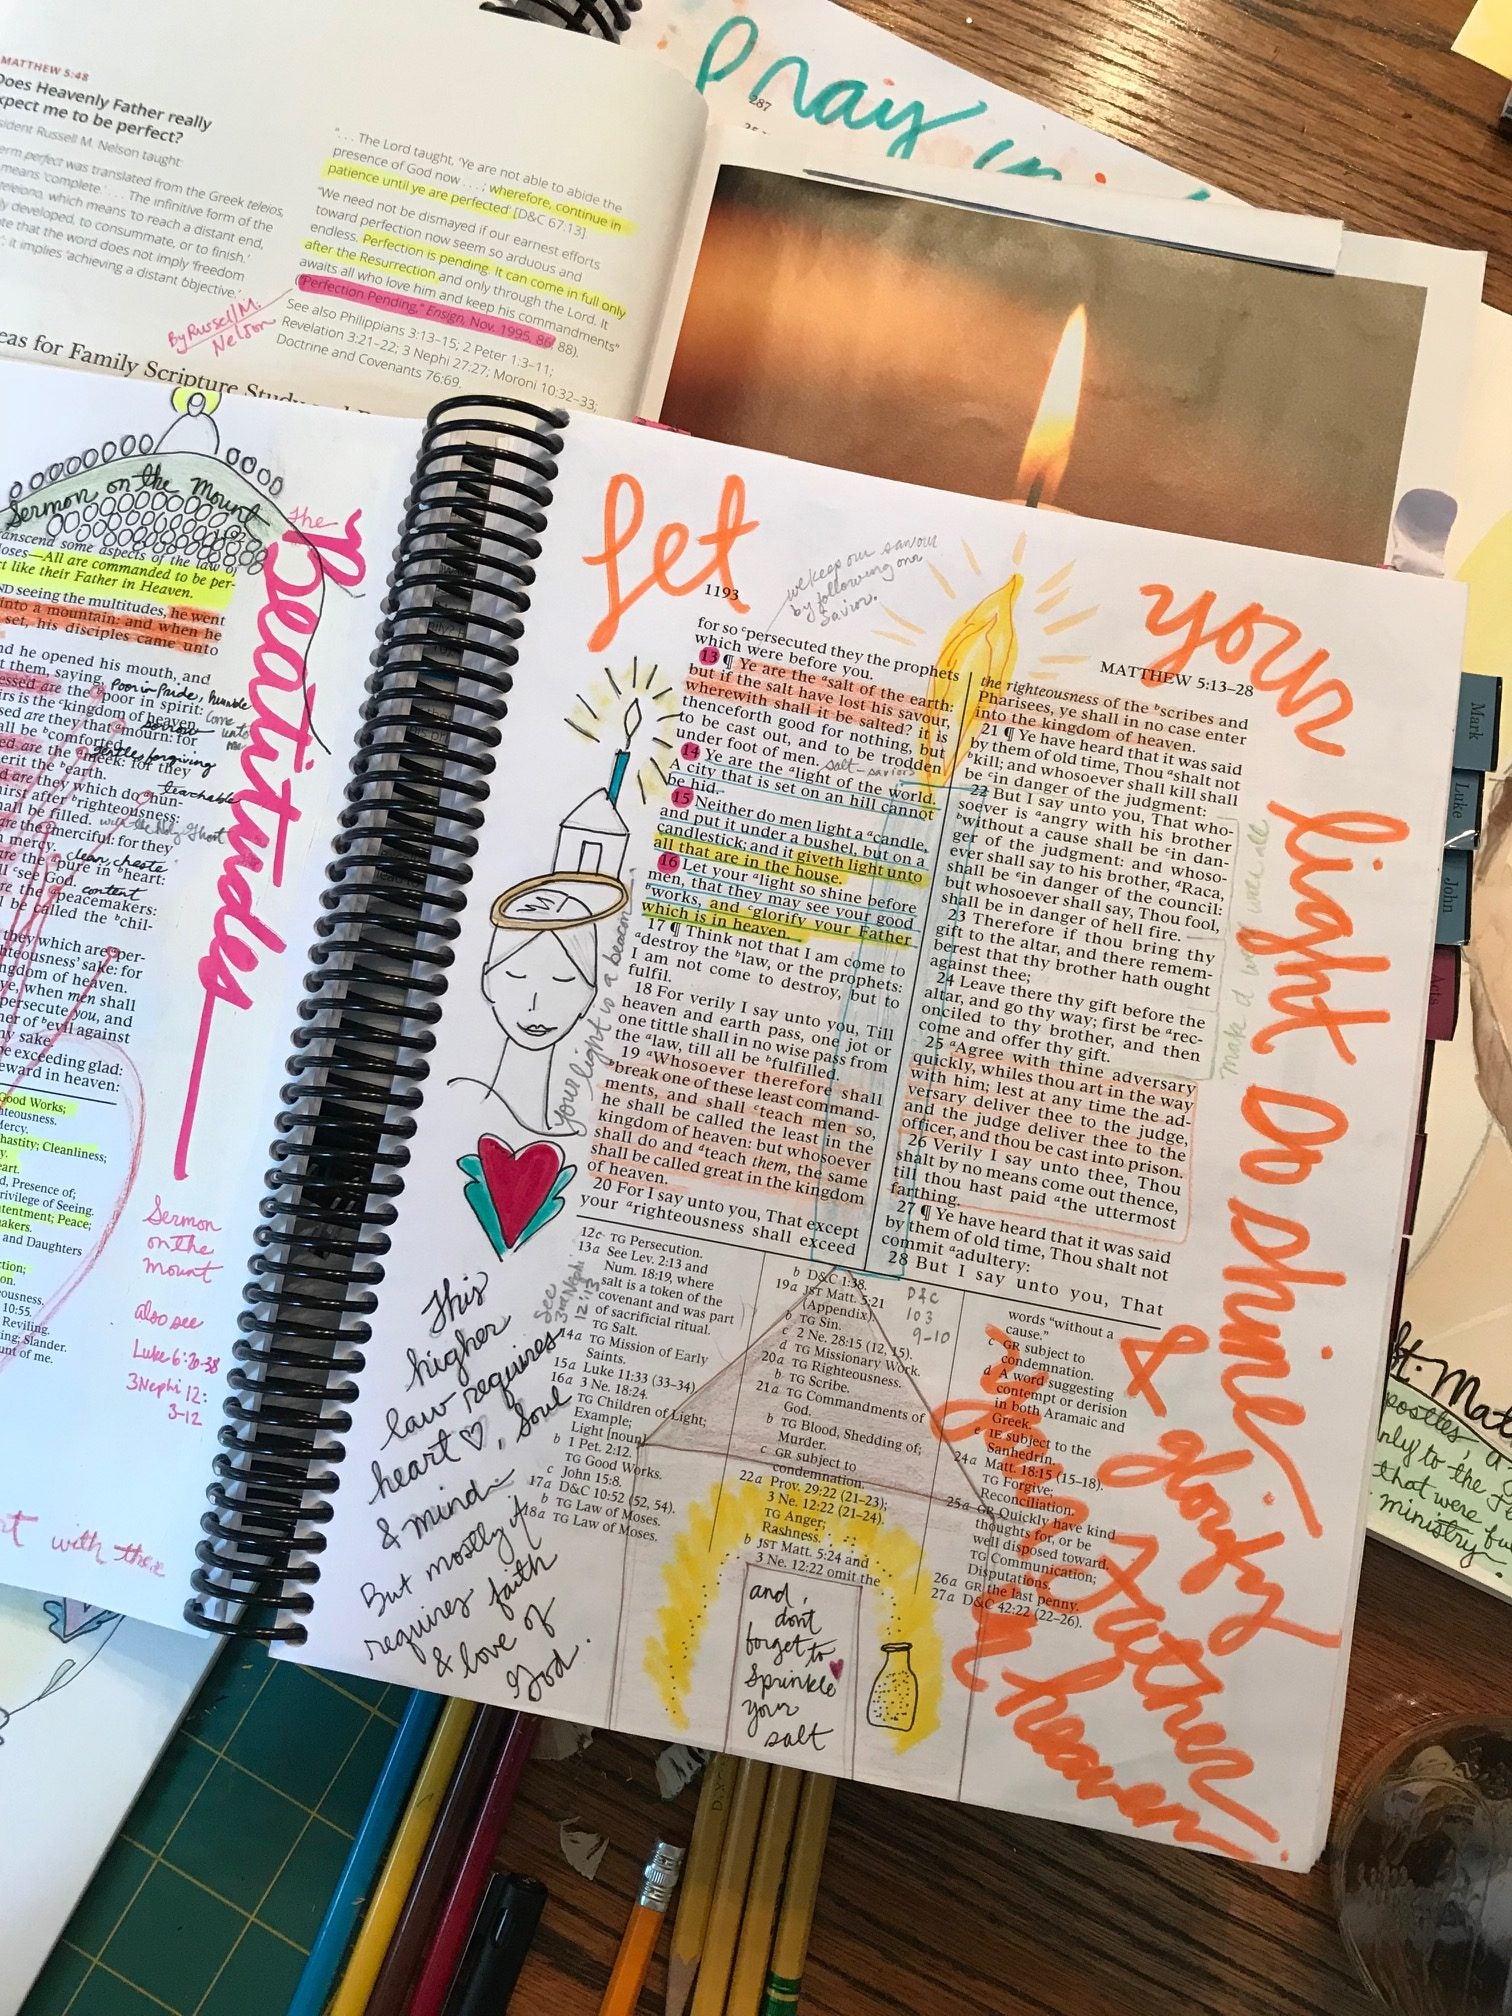 MATTHEW 5:48
Does Heavenly Father really
expect me to be perfect?
President Russell M. Nelson taught:
term perfect was translated from the Greek teleios,
means 'complete.' . . . The infinitive form of the
teleiono, which means 'to reach a distant end,
developed, to consummate, or to finish.'
that the word does not imply 'freedom
it implies 'achieving a distant objective.'
By Russell M.
Nelson
". . . The Lord taught, 'Ye are not able to abide the
presence of God now . . . ; wherefore, continue in
patience until ye are perfected' [D&C 67:13]
"We need not be dismayed if our earnest efforts
toward perfection now seem so arduous and
endless. Perfection is pending. It can come in full only
after the Resurrection and only through the Lord. It
awaits all who love him and keep his commandments"
("Perfection Pending," Ensign, Nov. 1995, 86, 88).
See also Philippians 3:13–15; 2 Peter 1:3–11;
Revelation 3:21–22; 3 Nephi 27:27; Moroni 10:32–33;
Doctrine and Covenants 76:69.
eas for Family Scripture Study
Pray
287
Sermon on the Mount
The
Beatitudes
transcend some aspects of the law of
Moses—All are commanded to be per-
ct like their Father in Heaven.
ND seeing the multitudes, he went
into a mountain: and when he
set, his disciples came unto
nd he opened his mouth, and
t them, saying,
Poor in Pride, humble
essed are the poor in spirit:
come unto me
irs is the kingdom of heaven.
sorrow
sed are they that mourn: for
all be comforted.
gentle, forgiving
ed are the meek: for they
erit the earth.
teachable
d are they which do hun-
hirst after righteousness:
all be filled.
with the Holy Ghost
are the merciful: for they
n mercy.
clean, chaste
are the pure in heart:
ll see God.
content
re the peacemakers:
l be called the chil-
they which are per-
ghteousness' sake: for
ngdom of heaven.
ye, when men shall
persecute you, and
ner of evil against
ny sake.
be exceeding glad:
eward in heaven:
Good Works;
hteousness.
Mercy.
hastity; Cleanliness;
y.
eart.
d, Presence of;
rivilege of Seeing.
ntentment; Peace;
akers.
and Daughters
ction;
on.
ousness.
10:55.
Reviling.
ng; Slander.
unt of me.
Sermon
on the
mount
also see
Luke 6:20-38
3 Nephi 12:
3-12
Let
your
light so shine
& glorify
your Father
in heaven
1193
we keep our savour
by following our
Savior.
MATTHEW 5:13–28
for so persecuted they the prophets
which were before you.
13 ¶ Ye are the salt of the earth:
but if the salt have lost his savour,
wherewith shall it be salted? it is
thenceforth good for nothing, but
to be cast out, and to be trodden
under foot of men.
salt-saviors
14 Ye are the light of the world.
A city that is set on an hill cannot
be hid.
15 Neither do men light a candle,
and put it under a bushel, but on a
candlestick; and it giveth light unto
all that are in the house.
16 Let your light so shine before
men, that they may see your good
works, and glorify your Father
which is in heaven.
17 ¶ Think not that I am come to
destroy the law, or the prophets:
I am not come to destroy, but to
fulfil.
18 For verily I say unto you, Till
heaven and earth pass, one jot or
one tittle shall in no wise pass from
the law, till all be fulfilled.
19 Whosoever therefore shall
break one of these least command-
ments, and shall teach men so,
he shall be called the least in the
kingdom of heaven: but whosoever
shall do and teach them, the same
shall be called great in the kingdom
of heaven.
20 For I say unto you, That except
your righteousness shall exceed
the righteousness of the scribes and
Pharisees, ye shall in no case enter
into the kingdom of heaven.
21 ¶ Ye have heard that it was said
by them of old time, Thou shalt not
kill; and whosoever shall kill shall
be in danger of the judgment:
22 But I say unto you, That who-
soever is angry with his brother
without a cause shall be in dan-
ger of the judgment: and whoso-
ever shall say to his brother, Raca,
shall be in danger of the council:
but whosoever shall say, Thou fool,
shall be in danger of hell fire.
23 Therefore if thou bring thy
gift to the altar, and there remem-
berest that thy brother hath ought
against thee;
24 Leave there thy gift before the
altar, and go thy way; first be rec-
onciled to thy brother, and then
come and offer thy gift.
25 Agree with thine adversary
quickly, whiles thou art in the way
with him; lest at any time the ad-
versary deliver thee to the judge,
and the judge deliver thee to the
officer, and thou be cast into prison.
26 Verily I say unto thee, Thou
shalt by no means come out thence,
till thou hast paid the uttermost
farthing.
27 ¶ Ye have heard that it was said
by them of old time, Thou shalt not
commit adultery:
28 But I say unto you, That
Your light is a beacon
This
higher
law requires
heart ♡, Soul
& mind—
But mostly it
requires faith
& love of
God.
12c TG Persecution.
13a See Lev. 2:13 and
Num. 18:19, where
salt is a token of the
covenant and was part
of sacrificial ritual.
TG Salt.
See
3rd Nephi
12:13
14a TG Mission of Early
Saints.
15a Luke 11:33 (33–34).
16a 3 Ne. 18:24.
TG Children of Light;
Example;
Light [noun].
b 1 Pet. 2:12.
TG Good Works.
c John 15:8.
17a D&C 10:52 (52, 54).
b TG Law of Moses.
18a TG Law of Moses.
b D&C 1:38.
19a JST Matt. 5:21
(Appendix).
b TG Sin.
c 2 Ne. 28:15 (12, 15).
d TG Missionary Work.
20a TG Righteousness.
b TG Scribe.
21a TG Commandments of
God.
b TG Blood, Shedding of;
Murder.
c GR subject to
condemnation.
22a Prov. 29:22 (21–23);
3 Ne. 12:22 (21–24).
TG Anger;
Rashness.
b JST Matt. 5:24 and
3 Ne. 12:22 omit the
D&C
103
9-10
words "without a
cause."
c GR subject to
condemnation.
d A word suggesting
contempt or derision
in both Aramaic and
Greek.
e IE subject to the
Sanhedrin.
24a Matt. 18:15 (15–18).
TG Forgive;
Reconciliation.
25a GR Quickly have kind
thoughts for, or be
well disposed toward.
TG Communication;
Disputations.
26a GR the last penny.
27a D&C 42:22 (22–26).
and,
don't
forget to
Sprinkle
your
salt
Mark
Luke
John
Acts
St. Mat
that were
ministry